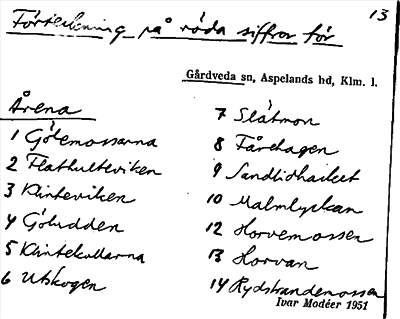 13
Förteckning på röda siffror för
Gårdveda sn, Aspelands hd, Klm. l.
Årena
1 Götemossarna
2 Flathulteviken
3 Klinteviken
4 Göludden
5 Klintekullarna
6 Utskogen
7 Slåtmon
8 Fårehagen
9 Sandlidhacket
10 Malmlyckan
12 Horvemossen
13 Horvan
14 Rydstrandemossen
Ivar Modéer 1951